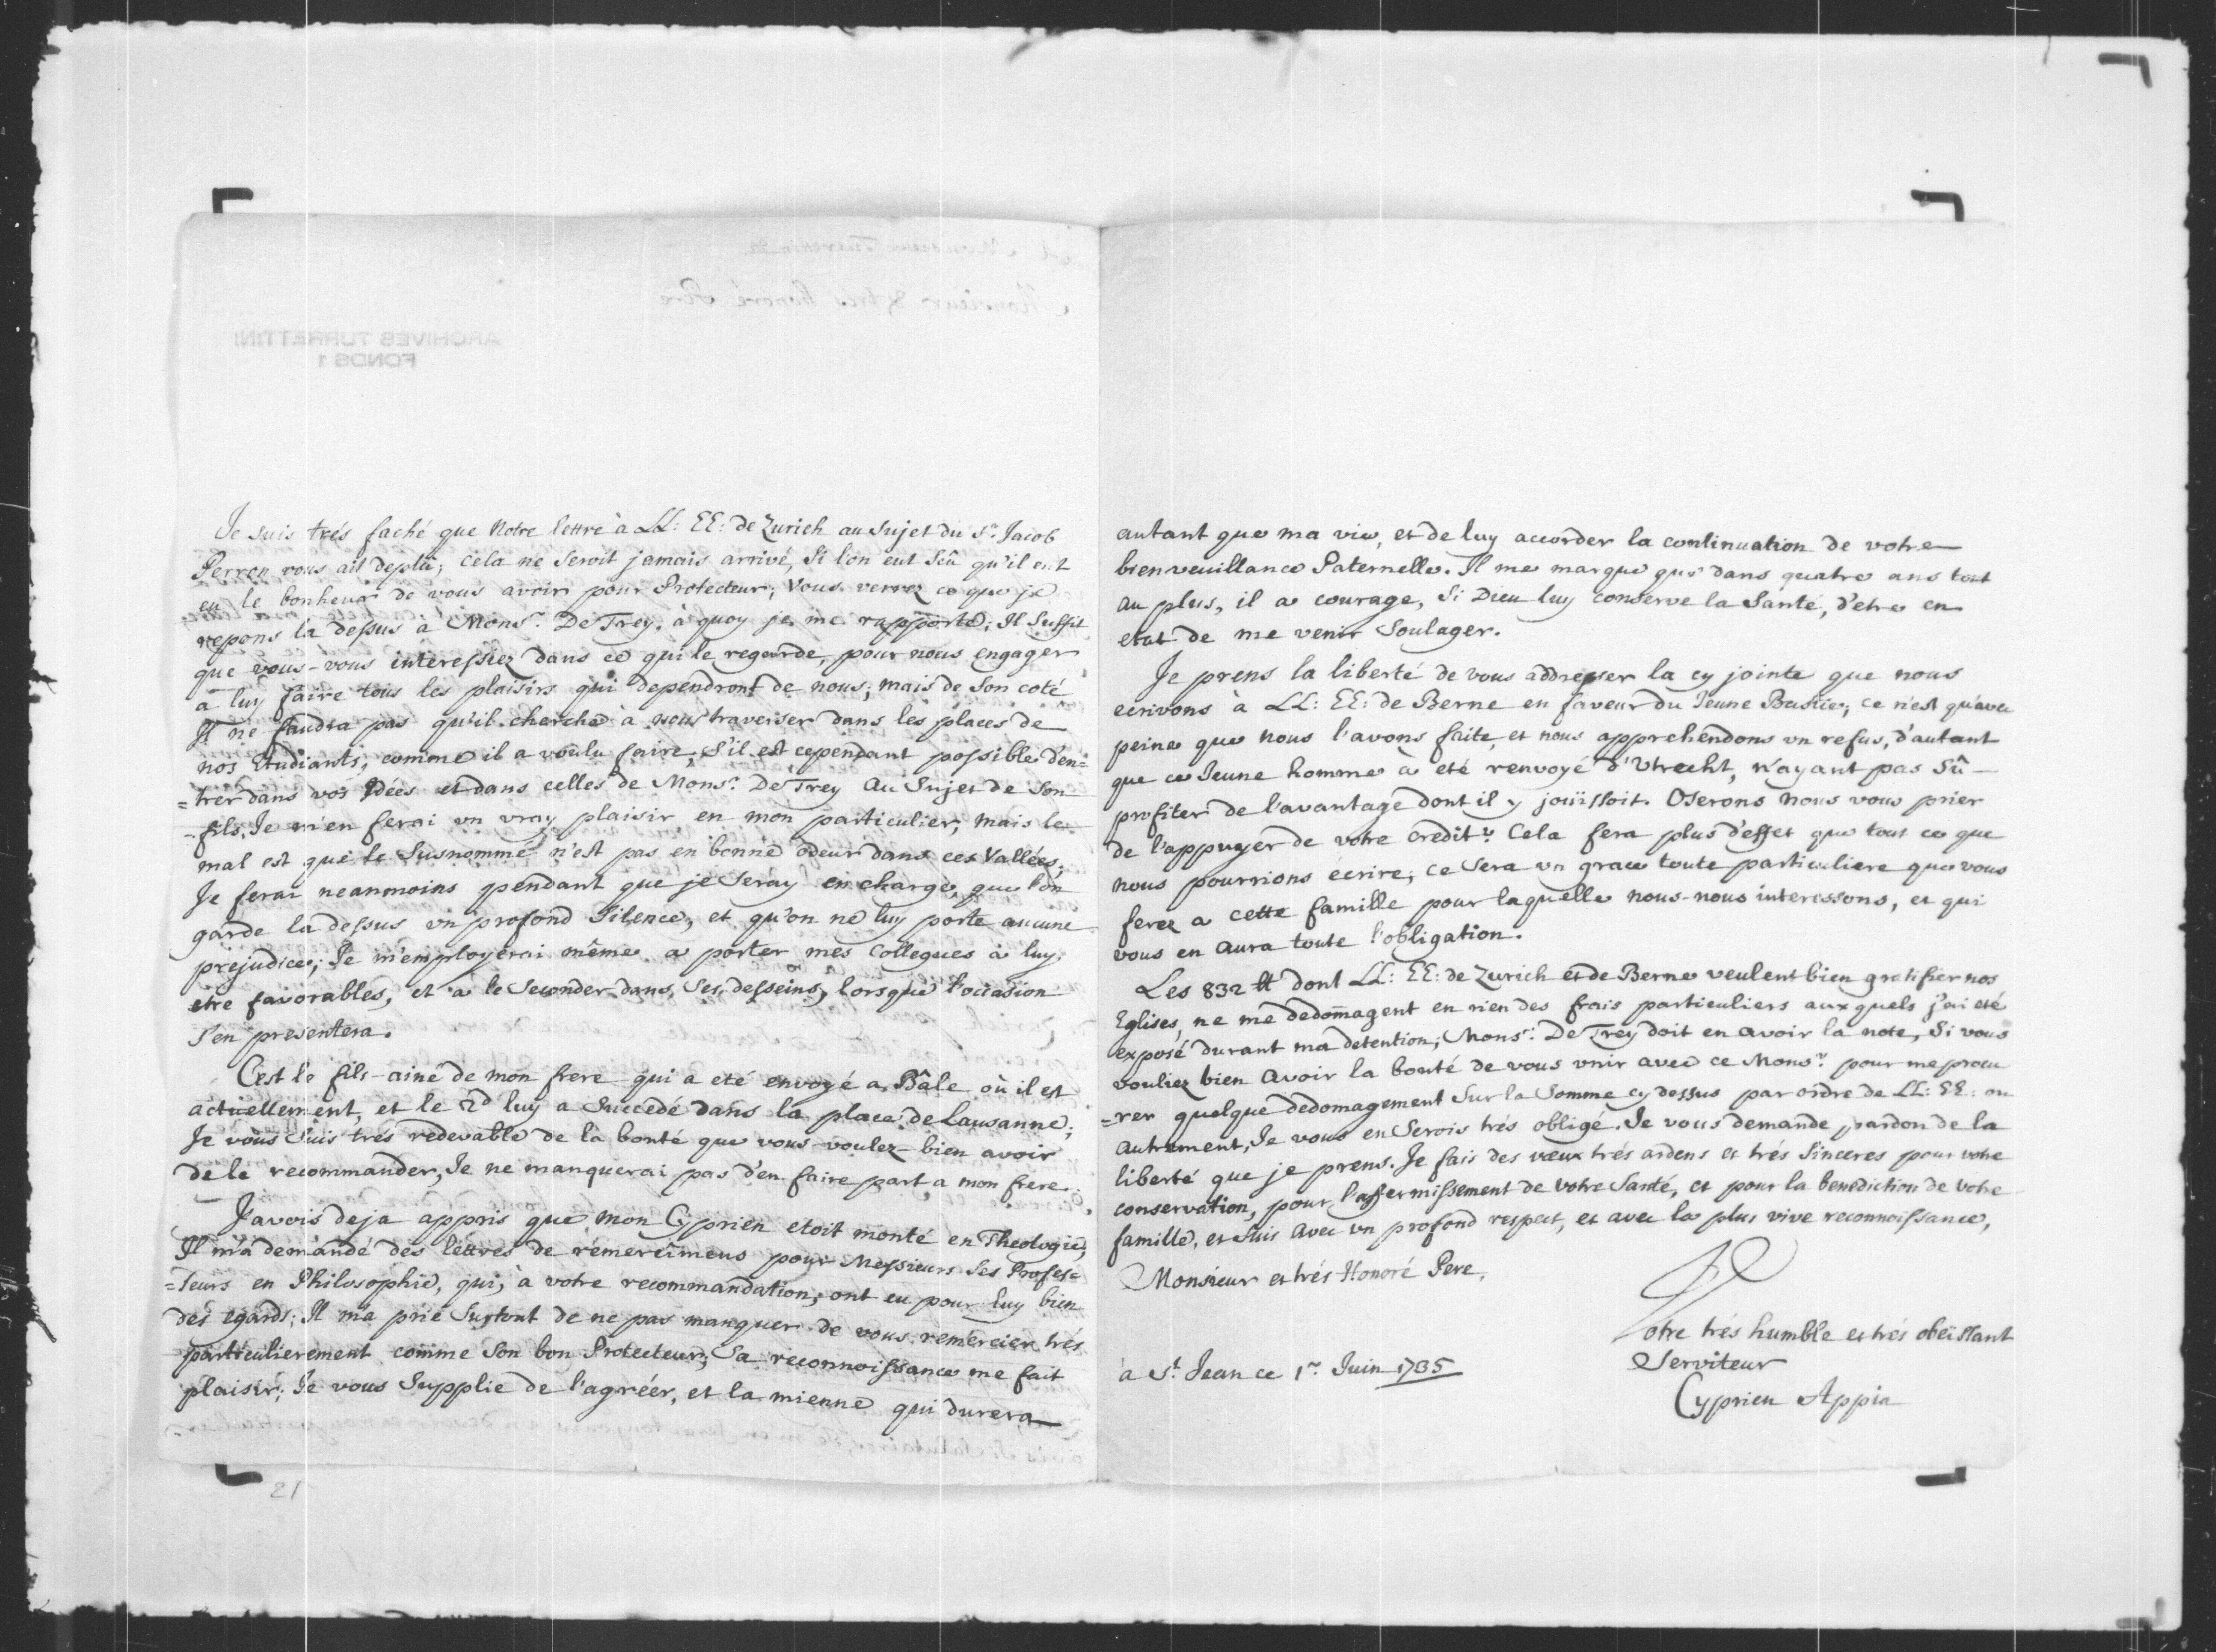 Je suis trés faché que Notre lettre à LL: EE: de Zurich au Sujet du Sr. Jacob
Perron vous ait deplû; cela ne Seroit jamais arrivé, Si l'on eut Sçû qu'il eut
eu le bonheur de vous avoir pour Protecteur; Vous verrez ce que je
repons la dessus à Monsr. De Trey, à quoy je me rapporte; Il Suffit
que vous-vous interessiez dans ce qui le regarde, pour nous engager
a luy faire tous les plaisirs qui dependront de nous; mais de Son coté
Il ne faudra pas qu'il cherche à nous traverser dans les places de
nos Etudiants, comme il a voulu faire; S'il est cependant possible d'en=
=trer dans vos Idées et dans celles de Monsr. De Trey Au Sujet de Son
fils, Je m'en ferai un vray plaisir en mon particulier, mais le
mal est que le Susnommé n'est pas en bonne odeur dans ces Vallées;
Je ferai neanmoins pendant que je Seray en charge, que l'on
garde la dessus un profond Silence, et qu'on ne luy porte aucune
prejudice; Je m'employerai même a porter mes Collegues à luy
etre favorables, et a le Seconder dans Ses desseins, lorsque l'occasion
S'en presentera.
C'est le fils-ainé de mon frere qui a eté envoyé a Bâle où il est
actuellement, et le 2d luy a Succedé dans la place de Lausanne;
Je vous Suis trés redevable de la bonté que vous-voulez-bien avoir
de le recommander, Je ne manquerai pas d'en faire part a mon frere.
J'avois deja appris que mon Cyprien etoit monté en Theologie,
Il m'a demandé des lettres de remercîmens pour Messieurs Ses Profes=
=Seurs en Philosophie, qui, à votre recommandation, ont eu pour luy bien
des egards; Il m'a prié Surtout de ne pas manquer de vous remercier trés
particulierement comme Son bon Protecteur; Sa reconnoissance me fait
plaisir; Je vous Supplie de l'agréer, et la mienne qui durera
21
autant que ma vie, et de luy accorder la continuation de votre
bienveuillance Paternelle. Il me marque que dans quatre ans tout
au plus, il a courage, Si Dieu luy conserve la Santé, d'etre en
etat de me venir Soulager.
Je prens la liberté de vous addresser la cy jointe que nous
ecrivons à LL: EE: de Berne en faveur du Jeune; ce n'est qu'avec
peine que nous l'avons faite, et nous apprehendons un refus, d'autant
que ce Jeune homme a eté renvoyé d'Utrecht, n'ayant pas Sû
profiter de l'avantage dont il y jouïssoit. Oserons nous vous prier
de l'appuyer de votre credit? Cela fera plus d'effet que tout ce que
nous pourrions écrire; ce Sera un grace toute particuliere que vous
ferez a cette famille pour laquelle nous-nous interessons, et qui
vous en aura toute l'obligation.
Les 832 ₶ dont LL: EE: de Zurich et de Berne veulent bien gratifier nos
Eglises, ne me dedom̃agent en rien des frais particuliers aux quels j'ai eté
exposé durant ma detention; Monsr. De Trey doit en avoir la note, Si vous
vouliez bien Avoir la bonté de vous unir avec ce Monsr. pour me procu
=rer quelque dedomagement Sur la Somme cy dessus par ordre de LL: EE: ou
autrement, Je vous en Serois trés obligé. Je vous demande pardon de la
liberté que je prens. Je fais des vœux trés ardens et trés Sinceres pour votre
conservation, pour l'affermissement de votre Santé, et pour la benediction de votre
famille, et Suis avec un profond respect, et avec la plus vive reconnoissance,
Monsieur et trés Honoré Pere,
Votre trés humble et trés obeïssant
Serviteur
à St. Jean ce 1r. Juin 1735
Cyprien Appia